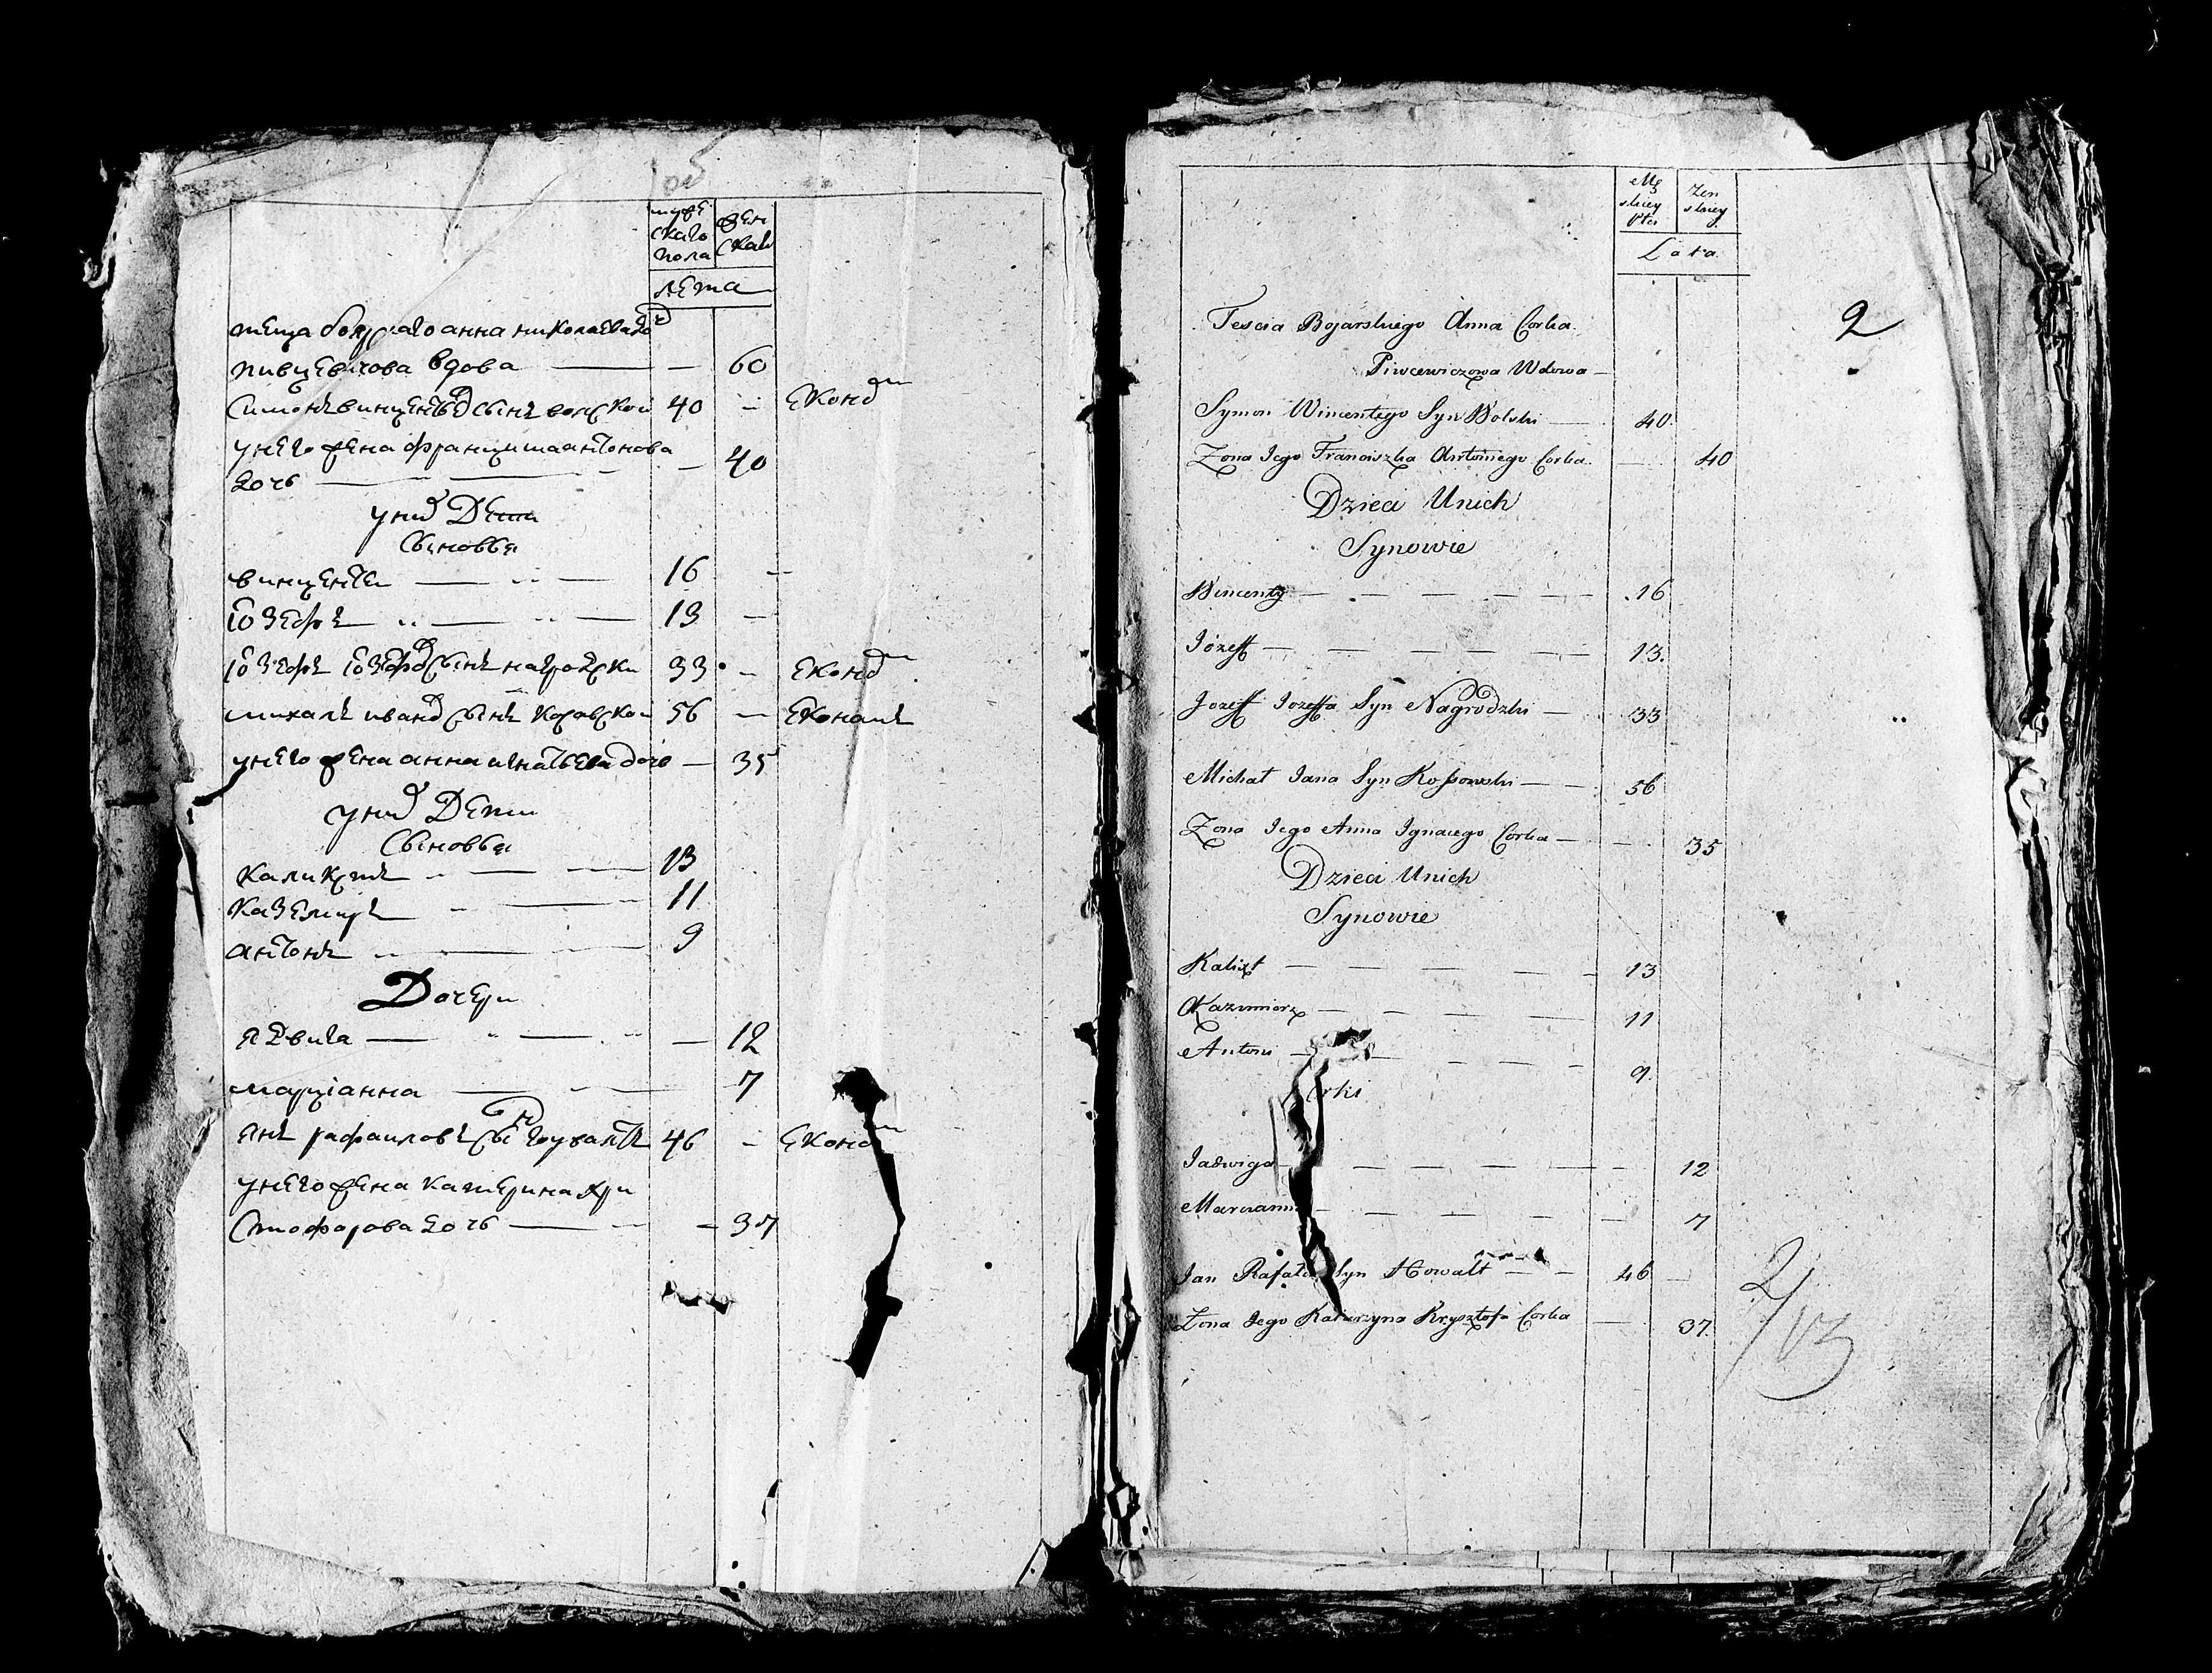 муже
скаго
пола
жен
скаго
лета
теща боярскаго анна николаева доч
пивцевичова вдова — — 60
симонъ винцентьев сынъ волской 40 — Економ
у него жена францишка антонова
дочь — — 40
у них Дети
Сыновья
винцентей — 16 —
юзефъ — 13 —
юзефъ юзефов сынъ нагродски 33 — Економ
михалъ иванов сынъ косовской 56 — Економъ
у него жена анна игнатьева дочь — 35
у них Дети
Сыновья
каликстъ — 13
каземиръ — 11
антонъ — 9
Дочери
ядвига — — 12
марцианна — 7
янъ рафаиловъ сын говалтъ 46 — Економ
у него жена катерина хри
стофорова дочь — — 37
Mę
skiey
płci
Żen
skiey
Lata
2
Tescia Bojarskiego Anna Corka
Piwcewiczowa Wdowa —
Symon Wincentego Syn Wolski — 40.
Zona Jego Franciszka Antoniego Corka. — 40
Dzieci Unich
Synowie
Wincenty — 16
Józeff — 13.
Jozeff Jozeffa Syn Nagrodzki — 33
Michał Jana Syn Kossowski — 56
Zona Jego Anna Ignacego Corka — 35
Dzieci Unich
Synowie
Kalixt — 13
Kazimierz — 11
Antoni — 9.
Corki
Jadwiga — 12
Marcianna — 7
Jan Rafała Syn Howalt — 46 —
Zona Jego Katarzyna Krysztofa Corka — 37.
2/13